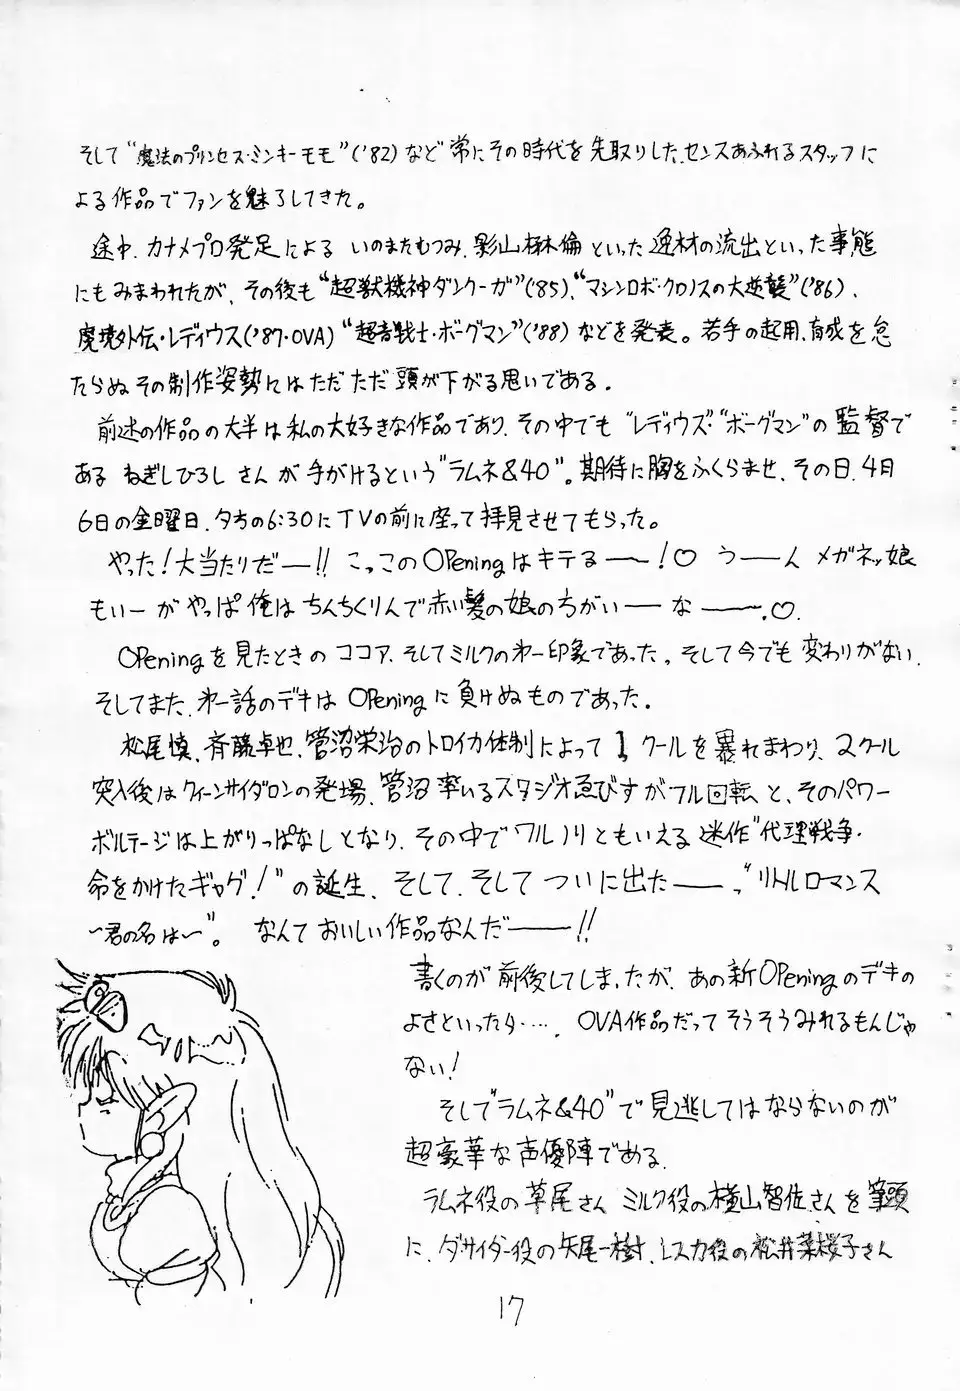 そして“魔法のプリンセス・ミンキーモモ”('82)など常にその時代を先取りした、センスあふれるスタッフに
よる作品でファンを魅了してきた。
途中、カナメプロ発足による いのまたむつみ、影山楙倫といった逸材の流出といった事態
にもみまわれたが、その後も“超獣機神ダンクーガ”('85)、“マシンロボ・クロノスの大逆襲”('86)、
魔境外伝・レディウス('87・OVA)“超音戦士・ボーグマン”('88)などを発表。若手の起用、育成を怠
たらぬその制作姿勢にはただただ頭が下がる思いである。
前述の作品の大半は私の大好きな作品であり、その中でも“レディウス”“ボーグマン”の監督で
ある ねぎしひろし さんが手がけるという“ラムネ&40”。期待に胸をふくらませ、その日、4月
6日の金曜日、夕方の6:30にTVの前に座って拝見させてもらった。
やった!大当たりだー!! こっこのOPeningはキテるー!♡ うーん メガネッ娘
もいーがやっぱ俺はちんちくりんで赤い髪の娘の方がいーなー。♡
OPeningを見たときのココア、そしてミルクの第一印象であった。そして今でも変わりがない。
そしてまた、第一話のデキはOPeningに負けぬものであった。
松尾慎、斉藤卓也、菅沼栄治のトロイカ体制によって1クールを暴れまわり、2クール
突入後はクィーンサイダロンの登場、菅沼率いるスタジオゑびすがフル回転と、そのパワー
ボルテージは上がりっぱなしとなり、その中でワルノリともいえる迷作“代理戦争・
命をかけたギャグ!”の誕生、そして、そしてついに出たー、“リトルロマンス
〜君の名は〜”。 なんておいしい作品なんだー!!
書くのが前後してしまったが、あの新OPeningのデキの
よさといったら‥‥、OVA作品だってそうそうみれるもんじゃ
ない!
そして“ラムネ&40”で見逃してはならないのが
超豪華な声優陣である。
ラムネ役の草尾さん ミルク役の横山智佐さんを筆頭
に、ダ・サイダー役の矢尾一樹、レスカ役の松井菜桜子さん
17